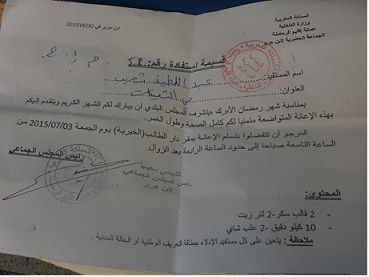 المملكة المغربية
وزارة الداخلية
عمالة إقليم الرحامنة
الجماعة الحضرية لابن جرير
ابن جرير في 2015/06/30
قسيمة استفادة رقم:
اسم المستفيد: عبد اللطيف
العنوان:
بمناسبة شهر رمضان الأبرك يتشرف المجلس البلدي أن يبارك لكم الشهر الكريم ويتقدم إليكم
بهذه الإعانة المتواضعة متمنيا لكم كامل الصحة وطول العمر.
المرجو أن تتفضلوا بتسلم الإعانة بمقر دار الطالب (الخيرية) يوم الجمعة 2015/07/03 من
الساعة التاسعة صباحا إلى حدود الساعة الرابعة بعد الزوال.
رئيس المجلس الجماعي
رئيس المجلس الجماعي
المحتوى:
- 2 قالب سكر - 2 لتر زيت
- 10 كيلو دقيق - 2 علب شاي
ملاحظة: يتعين على كل مستفيد الإدلاء ببطاقة التعريف الوطنية أو الحالة المدنية.